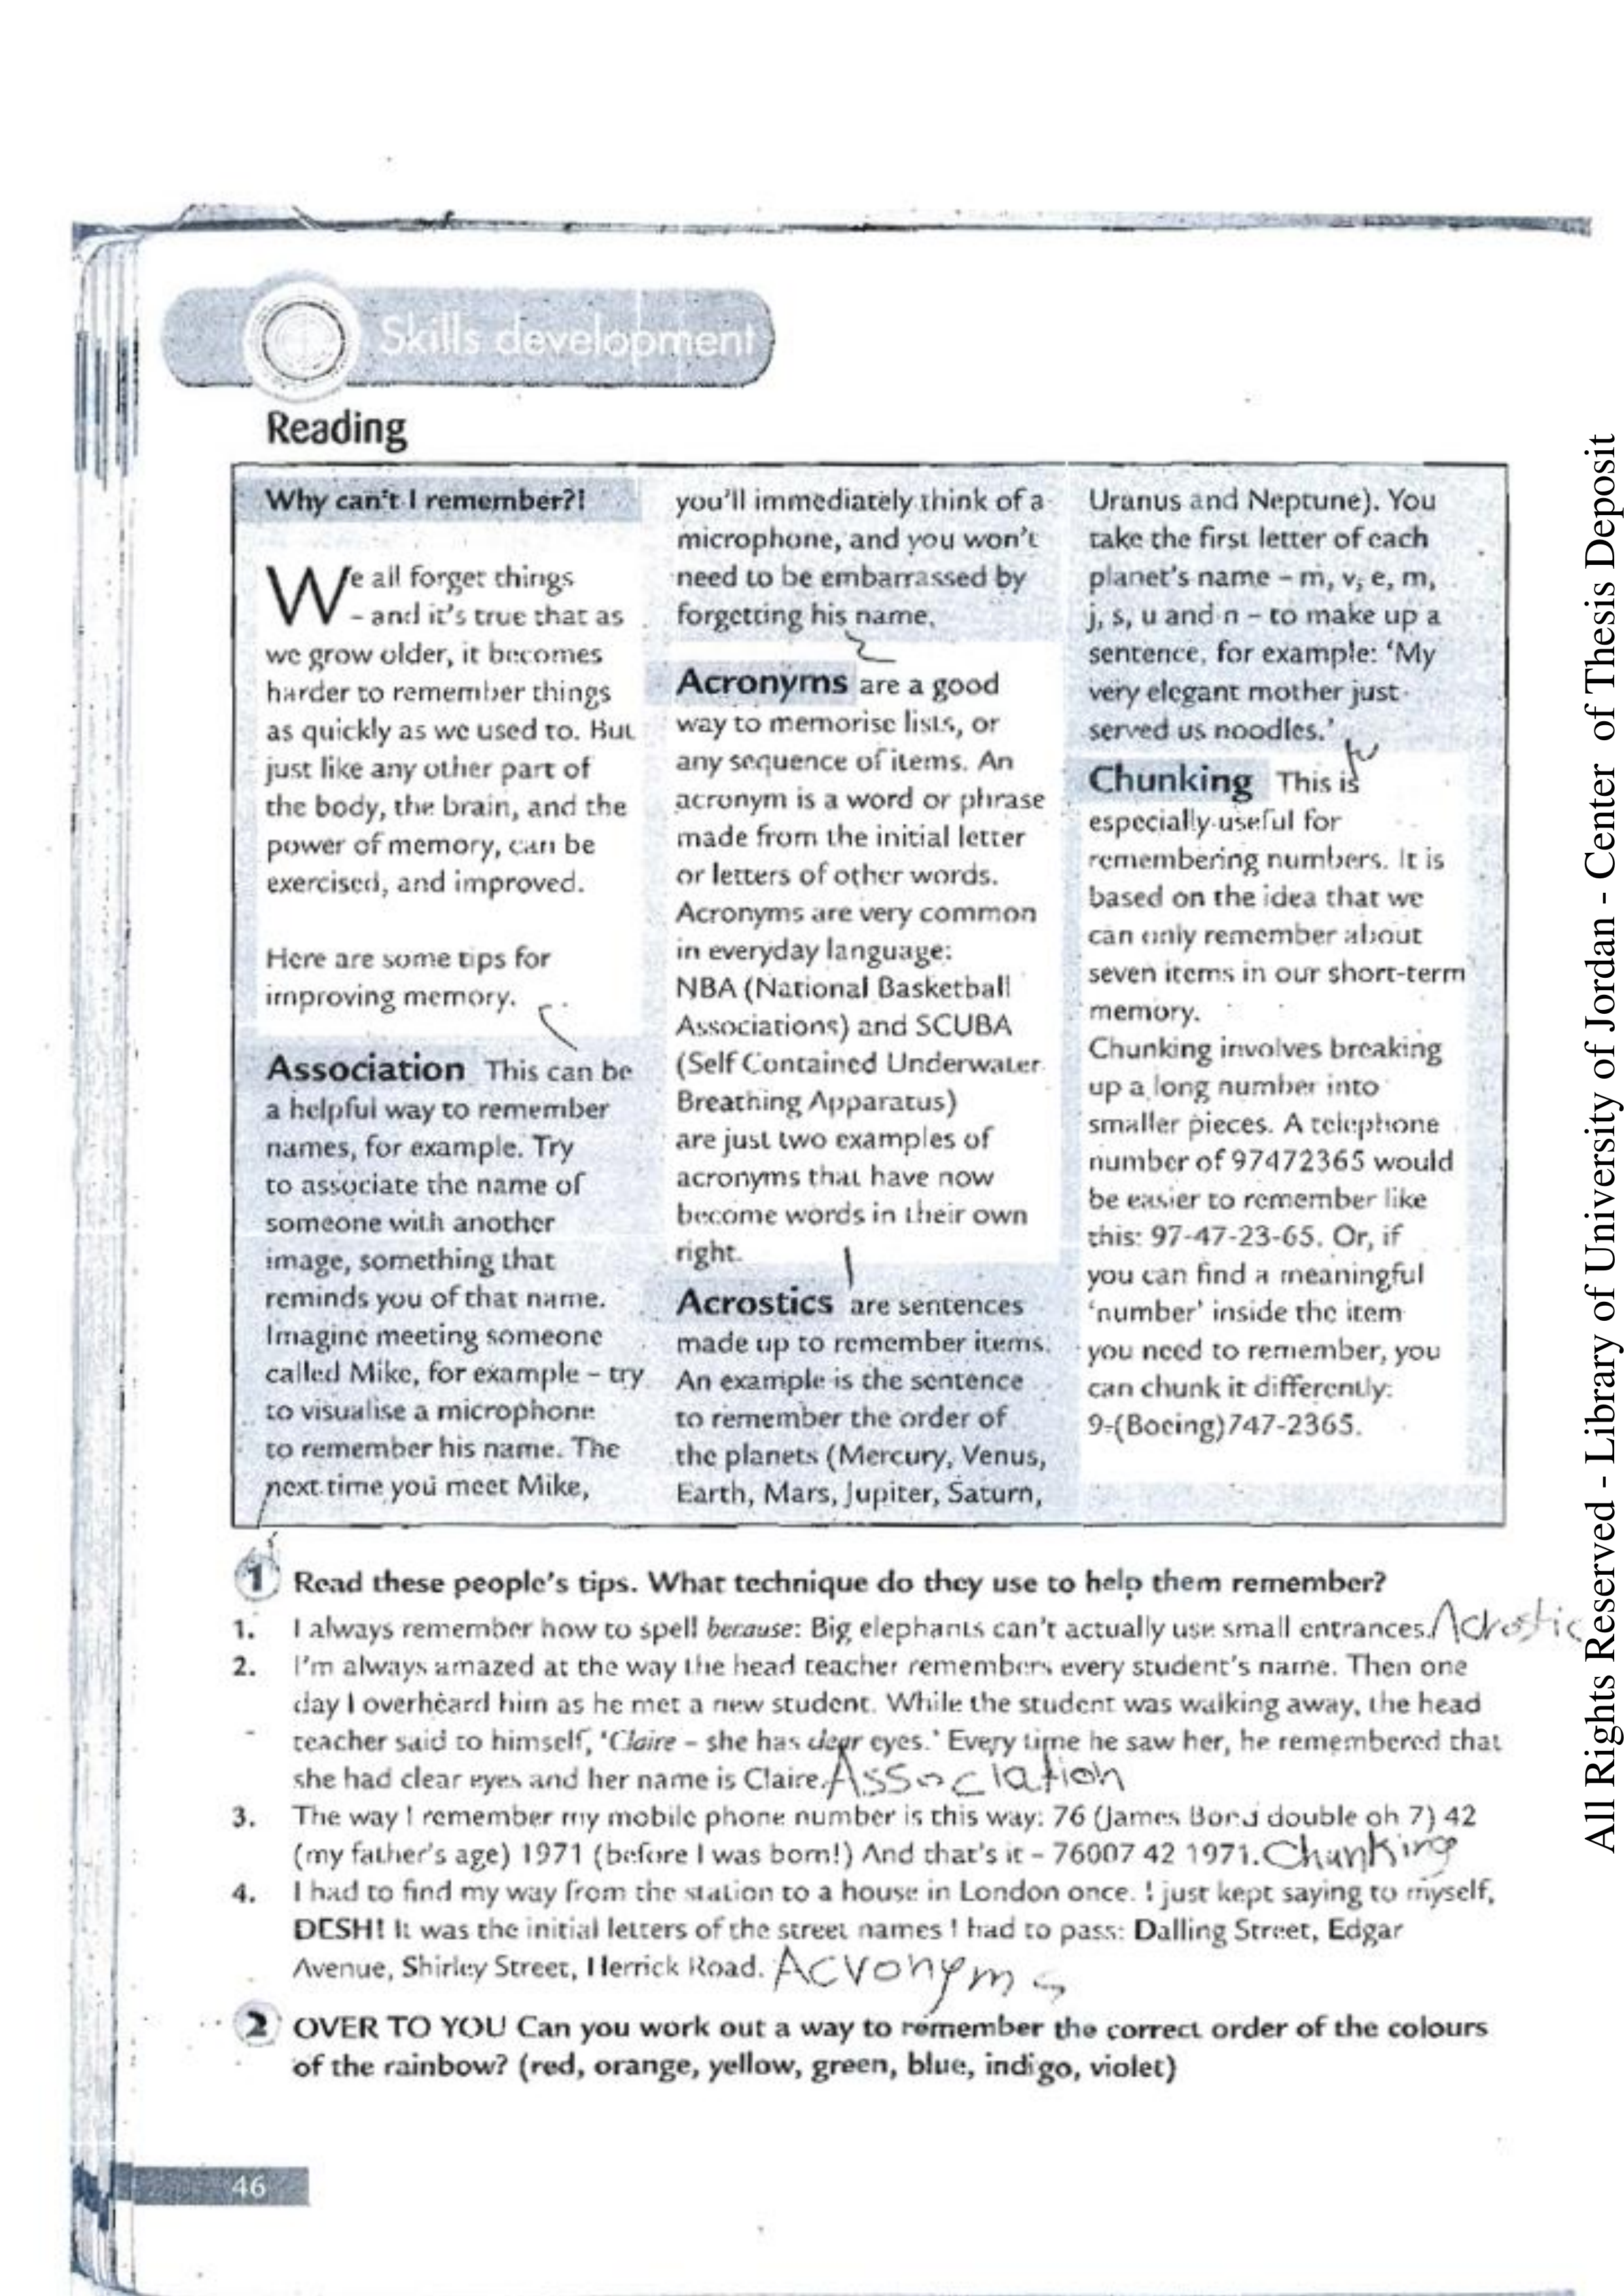 Skills development
Reading
Why can't I remember?!
We all forget things
– and it's true that as
we grow older, it becomes
harder to remember things
as quickly as we used to. But
just like any other part of
the body, the brain, and the
power of memory, can be
exercised, and improved.
Here are some tips for
improving memory.
Association This can be
a helpful way to remember
names, for example. Try
to associate the name of
someone with another
image, something that
reminds you of that name.
Imagine meeting someone
called Mike, for example – try
to visualise a microphone
to remember his name. The
next time you meet Mike,
you'll immediately think of a
microphone, and you won't
need to be embarrassed by
forgetting his name.
Acronyms are a good
way to memorise lists, or
any sequence of items. An
acronym is a word or phrase
made from the initial letter
or letters of other words.
Acronyms are very common
in everyday language:
NBA (National Basketball
Associations) and SCUBA
(Self Contained Underwater
Breathing Apparatus)
are just two examples of
acronyms that have now
become words in their own
right.
Acrostics are sentences
made up to remember items.
An example is the sentence
to remember the order of
the planets (Mercury, Venus,
Earth, Mars, Jupiter, Saturn,
Uranus and Neptune). You
take the first letter of each
planet's name – m, v, e, m,
j, s, u and n – to make up a
sentence, for example: 'My
very elegant mother just
served us noodles.'
Chunking This is
especially useful for
remembering numbers. It is
based on the idea that we
can only remember about
seven items in our short-term
memory.
Chunking involves breaking
up a long number into
smaller pieces. A telephone
number of 97472365 would
be easier to remember like
this: 97-47-23-65. Or, if
you can find a meaningful
'number' inside the item
you need to remember, you
can chunk it differently:
9-(Boeing)747-2365.
1 Read these people's tips. What technique do they use to help them remember?
1. I always remember how to spell because: Big elephants can't actually use small entrances. Acrostic
2. I'm always amazed at the way the head teacher remembers every student's name. Then one
day I overheard him as he met a new student. While the student was walking away, the head
teacher said to himself, 'Claire – she has clear eyes.' Every time he saw her, he remembered that
she had clear eyes and her name is Claire. Association
3. The way I remember my mobile phone number is this way: 76 (James Bond double oh 7) 42
(my father's age) 1971 (before I was born!) And that's it – 76007 42 1971. Chunking
4. I had to find my way from the station to a house in London once. I just kept saying to myself,
DESH! It was the initial letters of the street names I had to pass: Dalling Street, Edgar
Avenue, Shirley Street, Herrick Road. Acronyms
2 OVER TO YOU Can you work out a way to remember the correct order of the colours
of the rainbow? (red, orange, yellow, green, blue, indigo, violet)
46
All Rights Reserved - Library of University of Jordan - Center of Thesis Deposit